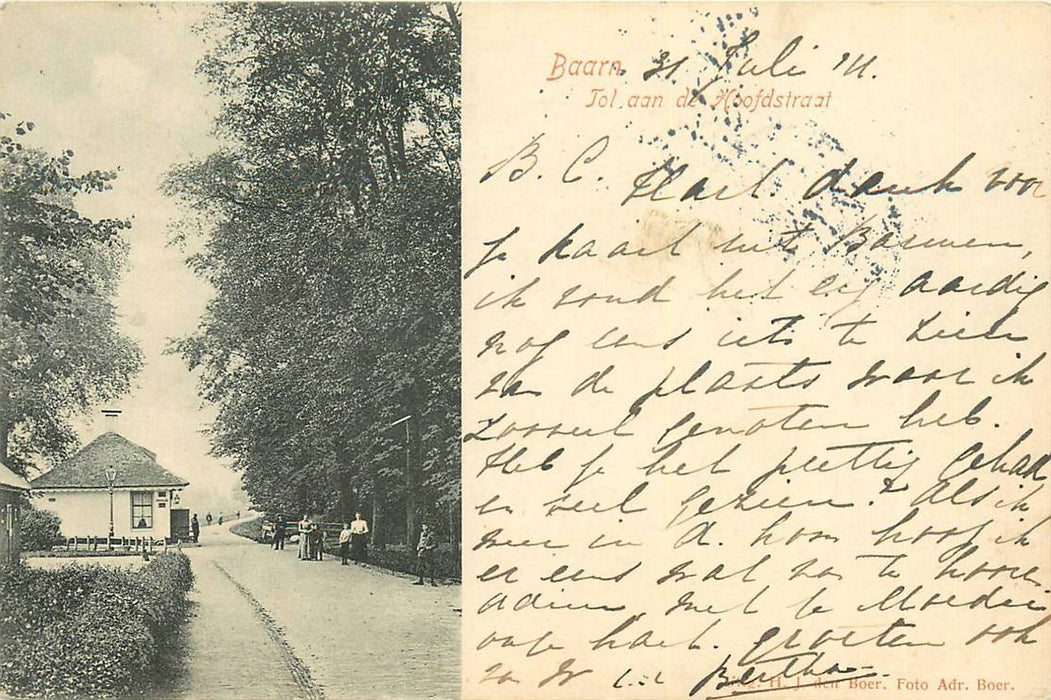 Baarn 31 Juli '11.
Tol aan de Hoofdstraat
B. C. Hart. dank voor
je kaart uit Barmen,
ik vond het erg aardig
nog eens iets te zien
van de plaats waar ik
zooveel genoten heb.
Heb je het prettig gehad
en veel gezien? Als ik
weer in A. kom hoop ik
er eens wat van te hooren
adieu, met je Moeder
onze hart. groeten ook
van Bertha
H. J. den Boer. Foto Adr. Boer.